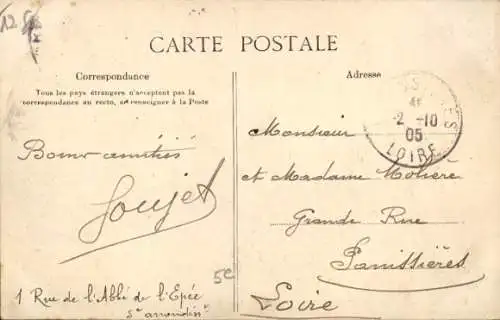 12
CARTE POSTALE
Correspondance
Tous les pays étrangers n'acceptent pas la
correspondance au recto, se renseigner à la Poste
Bonnes amitiés
1 Rue de l'Abbé de l'Epée
5e
Adresse
2 -10
05
LOIRE
Monsieur
et Madame Molière
Grande Rue
Panissières
Loire
5€